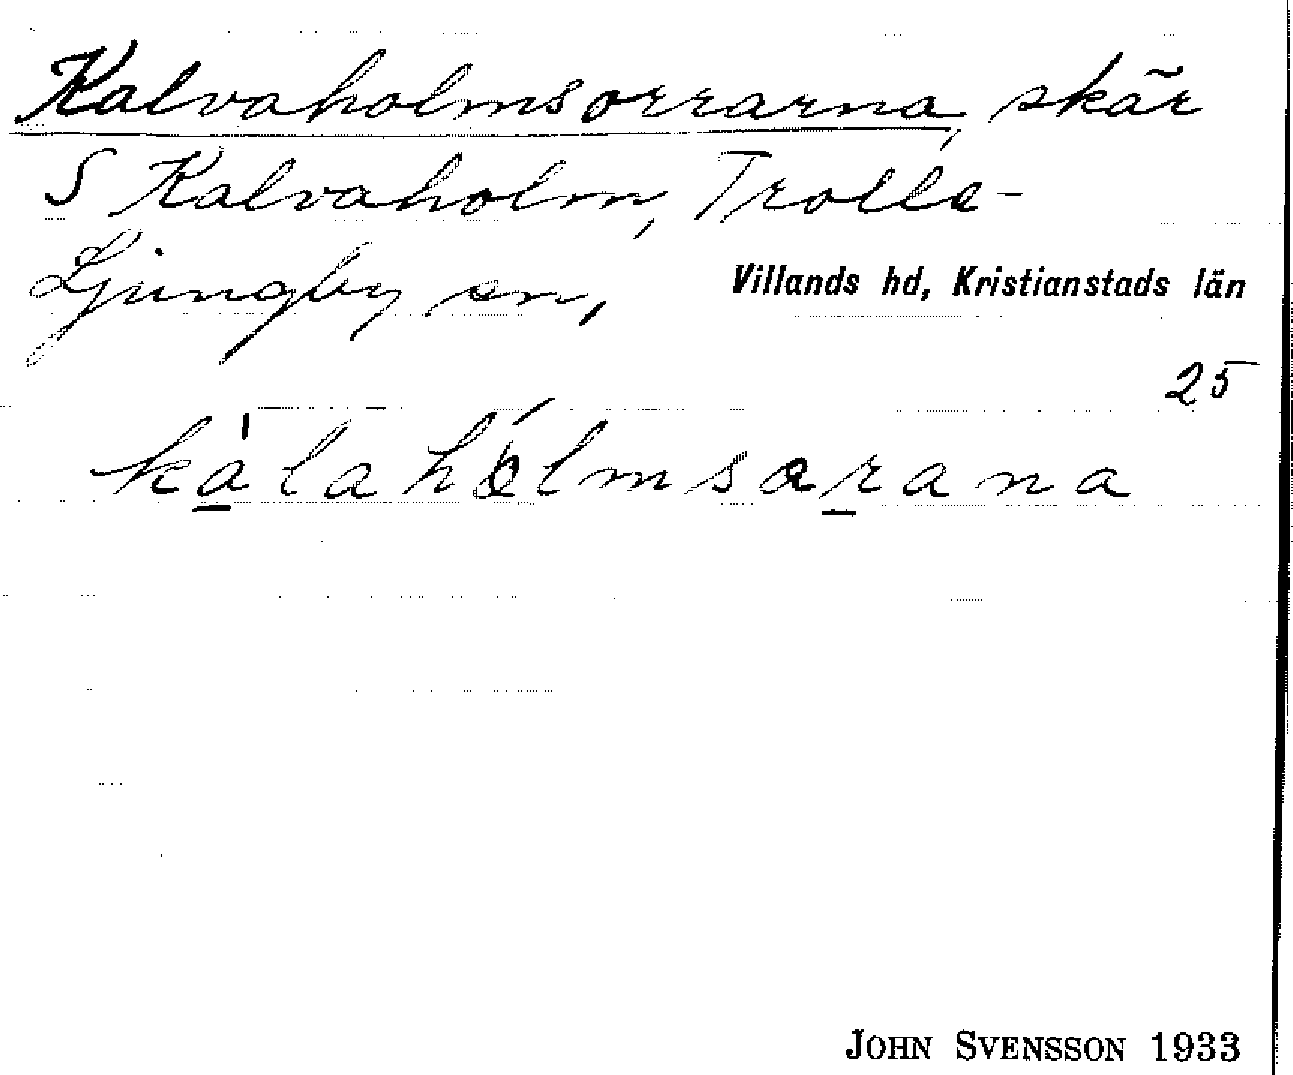 Kalvaholmsorrarna, skär
S Kalvaholm, Trolle-
Ljungby sn, Villands hd, Kristianstads län
25
kàlahólmsorana
JOHN SVENSSON 1933